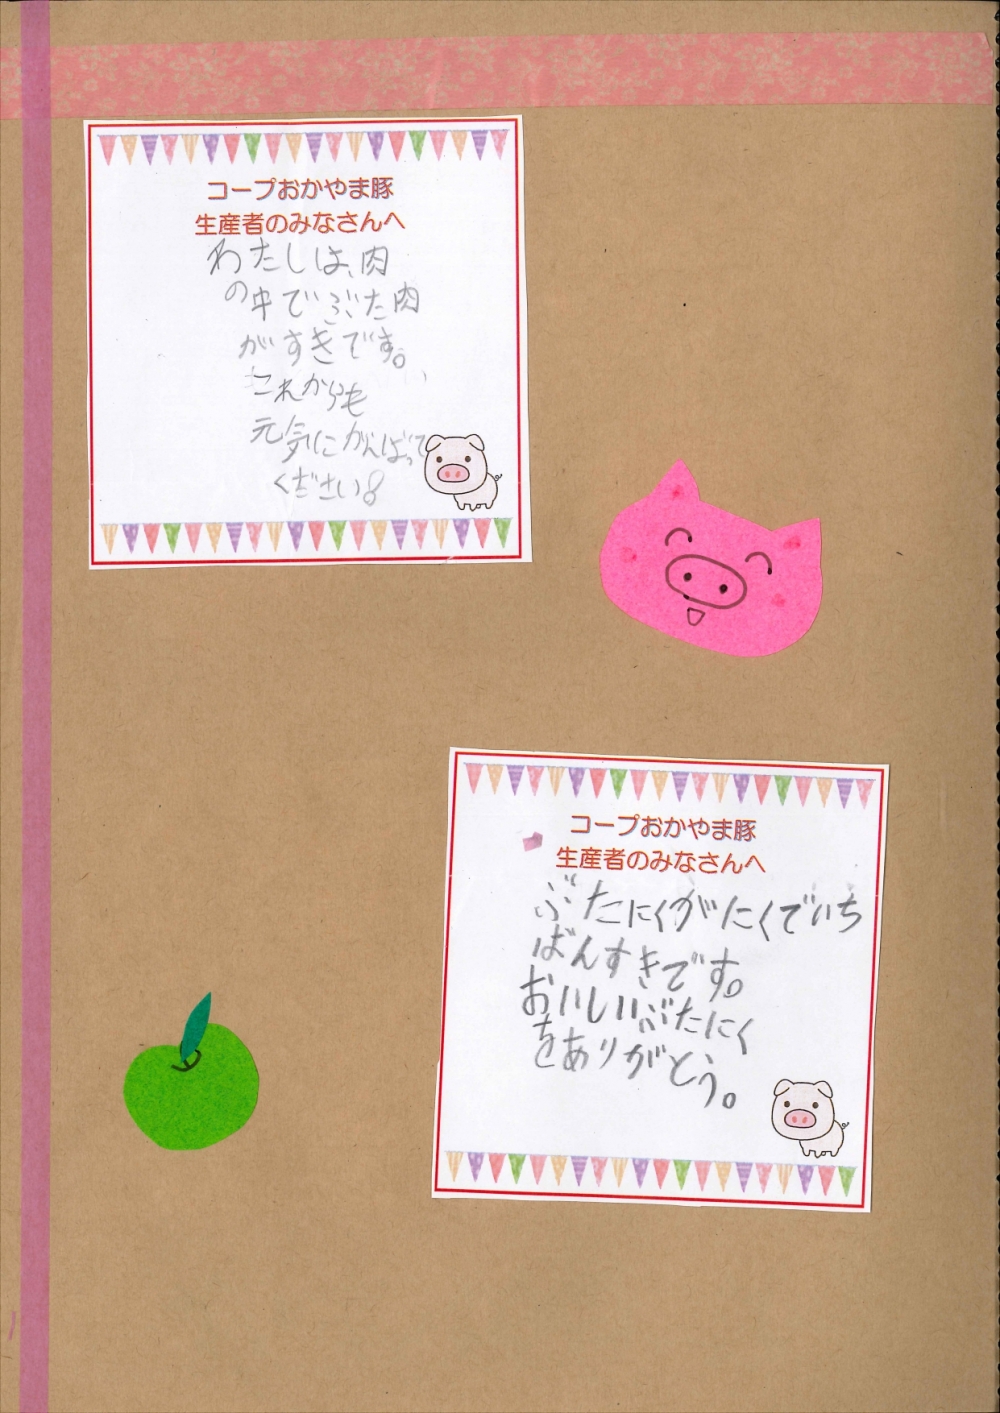 コープおかやま豚
生産者のみなさんへ
わたしは、肉
の中でぶた肉
がすきです。
これからも
元気にがんばって
ください!
コープおかやま豚
生産者のみなさんへ
ぶたにくがにくでいち
ばんすきです。
おいしいぶたにく
をありがとう。